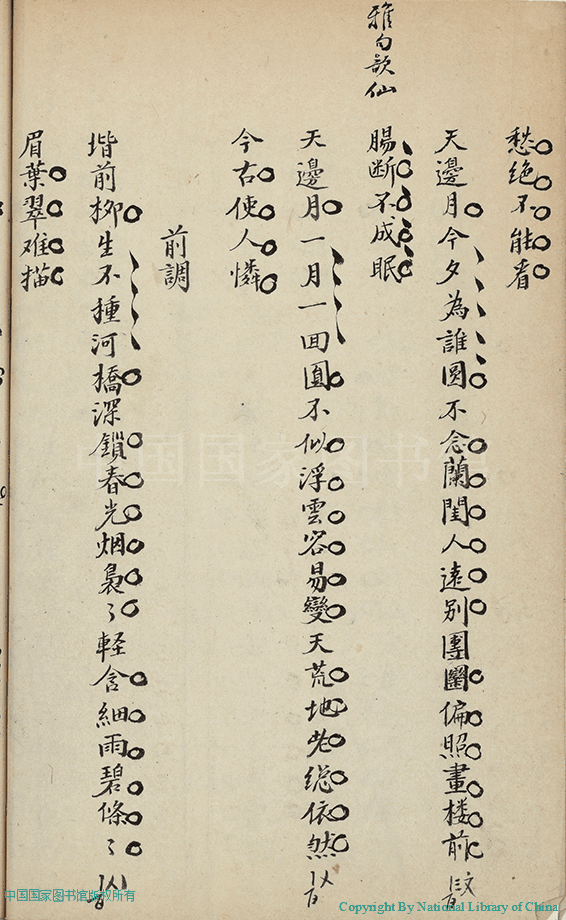 愁絶不能看
天邊月今夕為誰圓不念蘭閨人遠別團圞偏照畫楼前
腸断不成眠
雅句欲仙
天邊月一月一囬圓不似浮雲容易變天荒地老総依然
今古使人憐
前調
堦前柳生不種河橋深鎖春光烟裊〻輕含細雨碧條〻
眉葉翠难描
中国国家图书馆
中国国家图书馆版权所有
Copyright By National Library of China